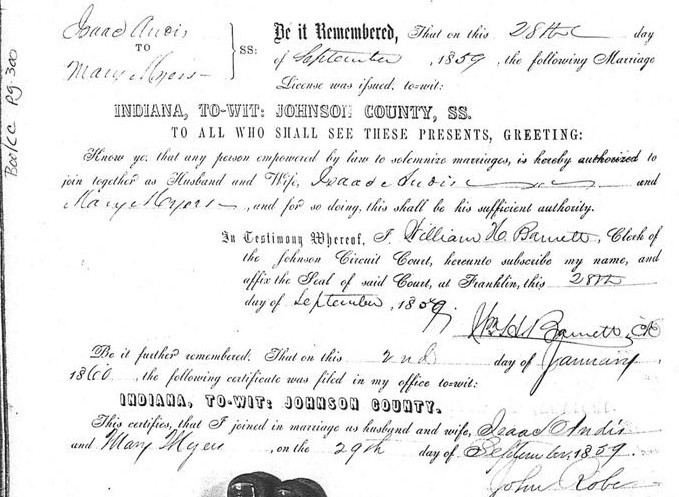 Isaac Andis
TO
Mary Myers
SS:
Be it Remembered, That on this 28th day
of September, 1859, the following Marriage
License was issued, to=wit:
INDIANA, TO-WIT: JOHNSON COUNTY, SS.
TO ALL WHO SHALL SEE THESE PRESENTS, GREETING:
Know ye, that any person empowered by law to solemnize marriages, is hereby authorized to
join together as Husband and Wife, Isaac Andis and
Mary Myers, and for so doing, this shall be his sufficient authority.
In Testimony Whereof, I, William H. Barnett, Clerk of
the Johnson Circuit Court, hereunto subscribe my name, and
affix the Seal of said Court, at Franklin, this 28th
day of September, 1859
Wm H Barnett, Clk
Be it further remembered, That on this 2nd day of January
1860, the following certificate was filed in my office to=wit:
INDIANA, TO-WIT: JOHNSON COUNTY.
This certifies, that I joined in marriage as husband and wife, Isaac Andis
and Mary Myers, on the 29th day of September, 1859.
John
Book C Pg 300